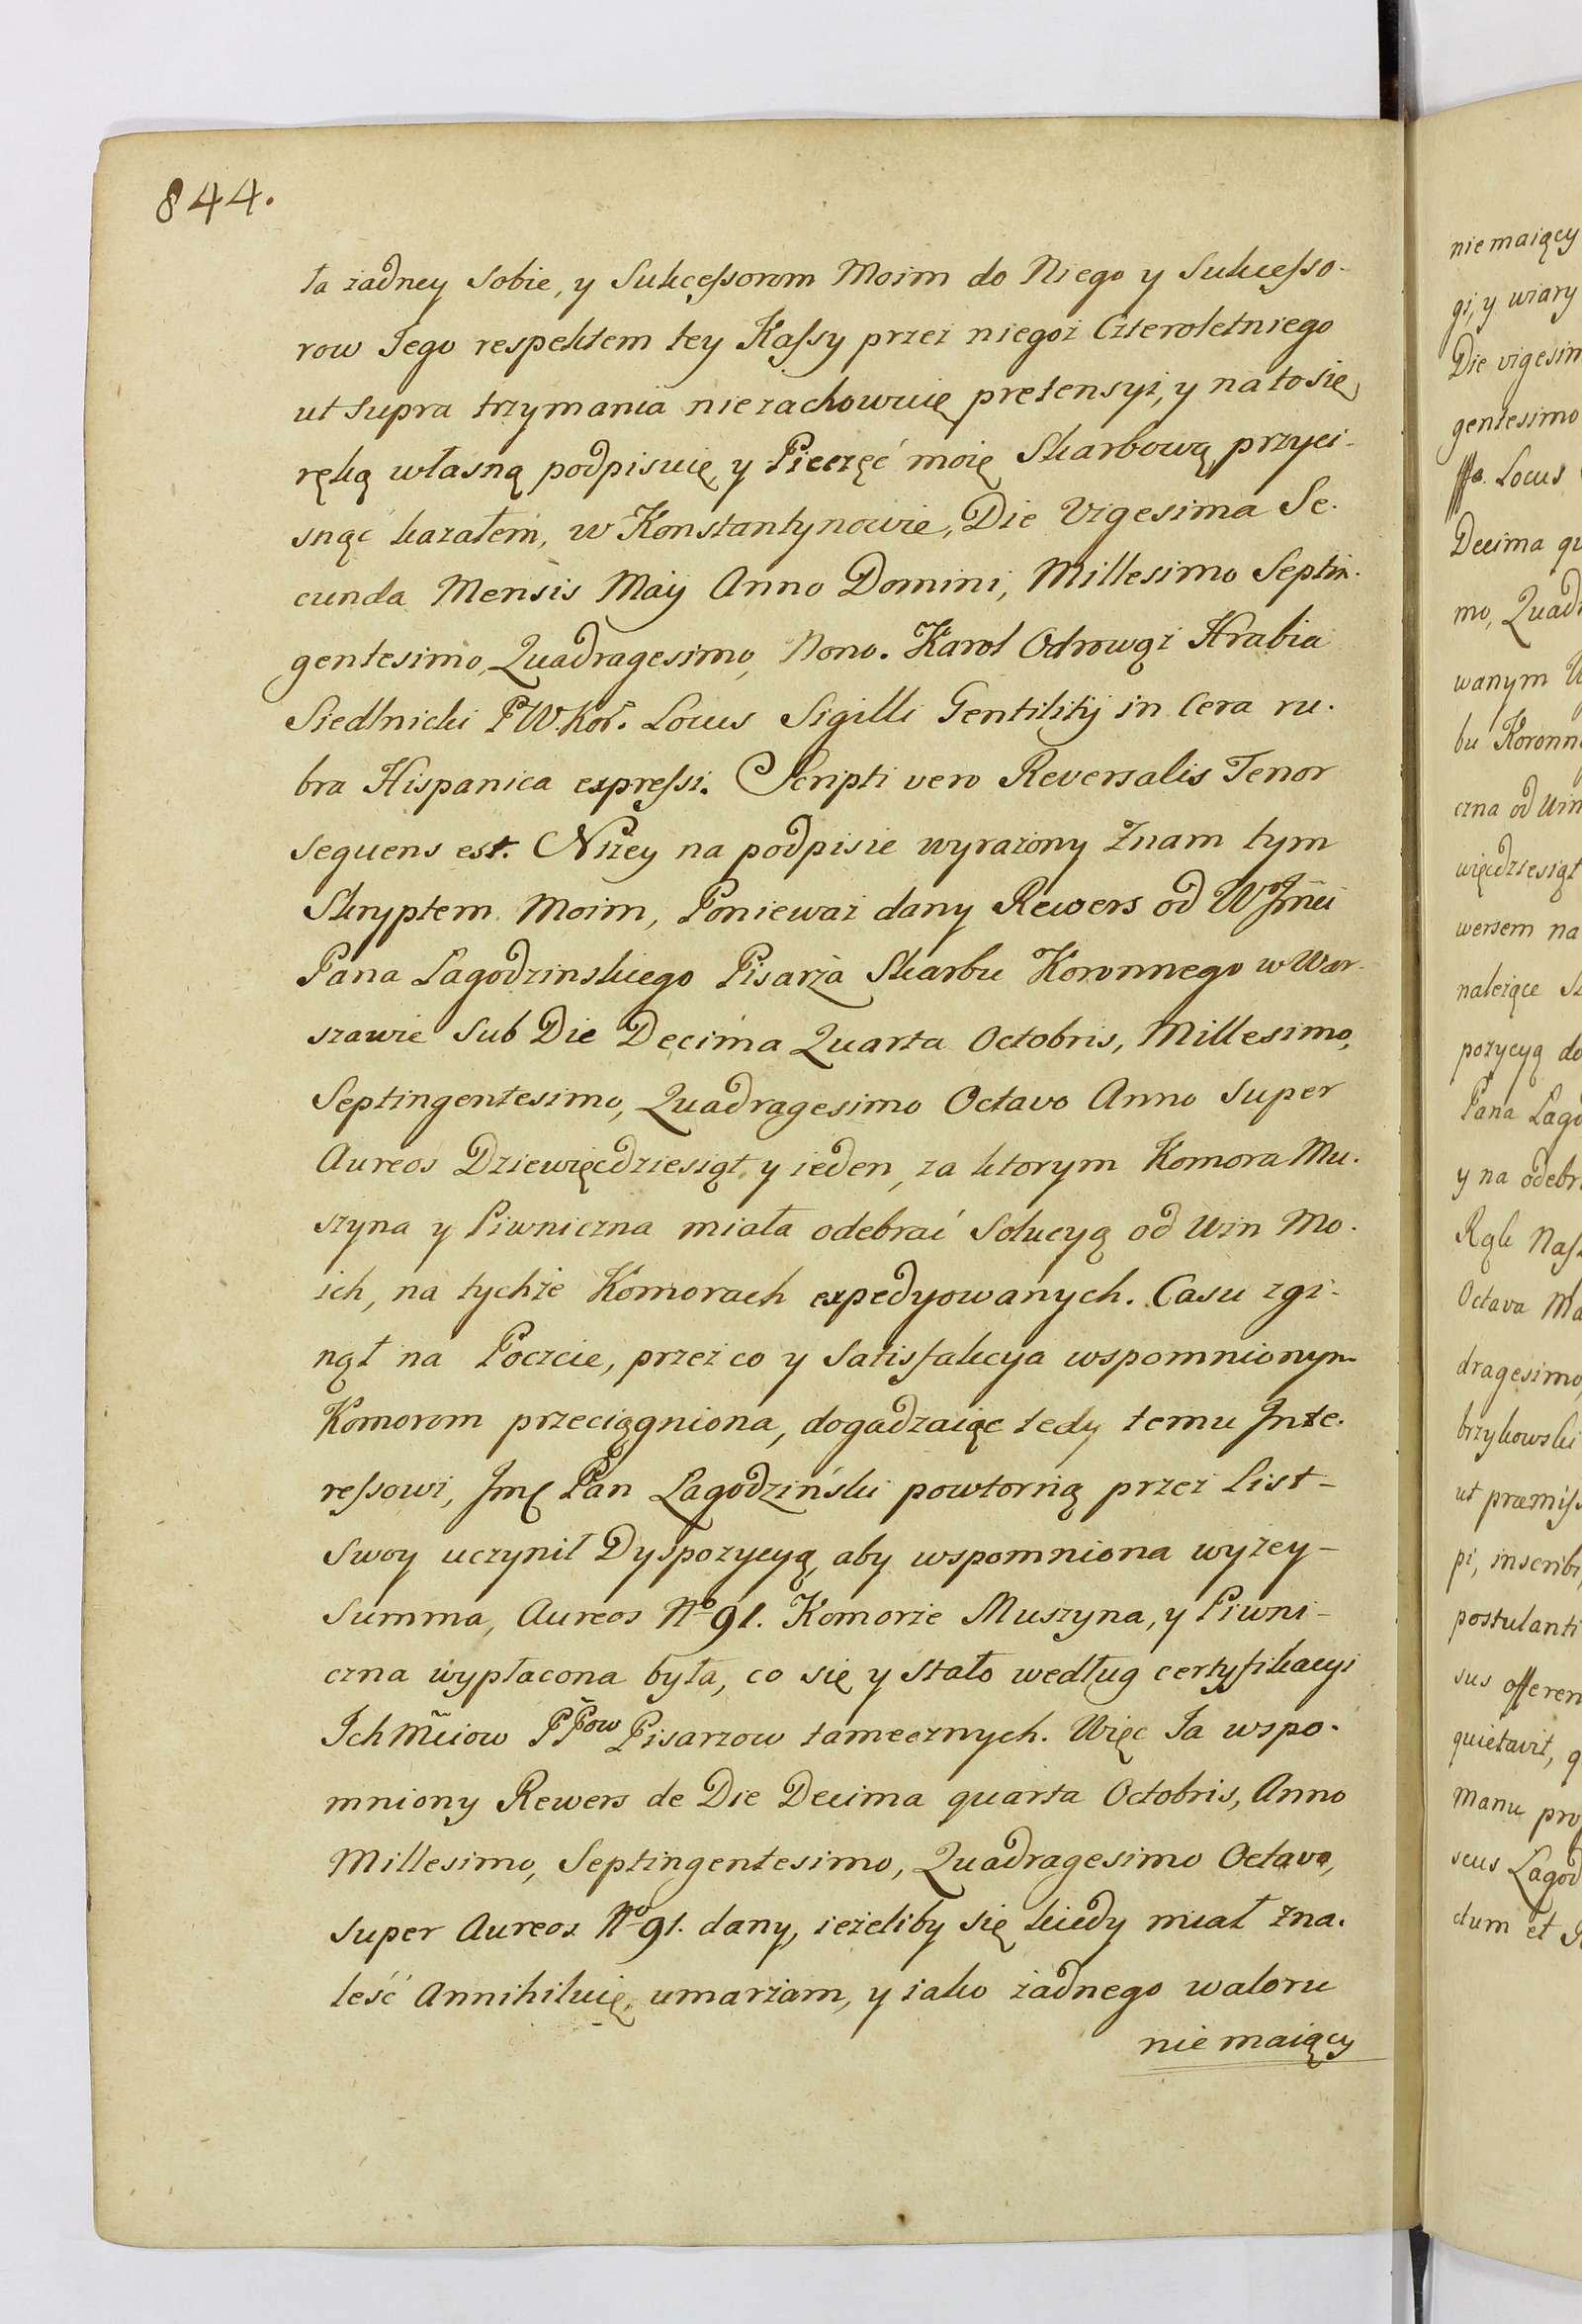 844.
ła żadney Sobie, y Sukcessorom Moim do Niego y Sukcesso-
row Jego respektem tey Kassy przez niegoż Czteroletniego
ut supra trzymania nie zachowuię pretensyi, y na to się
ręką własną podpisuię y Pieczęć moię Skarbową przyci-
snąć kazałem, w Konstantynowie, Die Vigesima Se-
cunda Mensis Maij Anno Domini, Millesimo Septin-
gentesimo, Quadragesimo, Nono. Karol Odrowąż Hrabia
Siedlnicki P.W.Kor. Locus Sigilli Gentilitij in Cera ru-
bra Hispanica expressi. Scripti vero Reversalis Tenor
sequens est. Niżey na podpisie wyrażony Znam tym
Skryptem Moim, Ponieważ dany Rewers od WJmci
Pana Łagodzinskiego Pisarza Skarbu Koronnego w War-
szawie Sub Die Decima Quarta Octobris, Millesimo,
Septingentesimo, Quadragesimo Octavo Anno Super
Aureos Dziewięcdziesiąt y ieden, za ktorym Komora Mu-
szyna y Piwniczna miała odebrać Solucyą od Win Mo-
ich, na tychże Komorach expedyowanych. Casu zgi-
nął na Poczcie, przez co y Satisfakcya wspomnionym
Komorom przeciągniona, dogadzaiąc tedy temu Inte-
ressowi, Jmć Pan Łagodziński powtorną przez List-
Swoy uczynił Dyspozycyą, aby wspomniona wyżey-
Summa, Aureos No 91. Komorze Muszyna, y Piwni-
czna wypłacona była, co się y Stało według certyfikacyi
Ich Mciow PPow Pisarzow tamecznych. Więc Ja wspo-
mniony Rewers de Die Decima quarta Octobris, Anno
Millesimo, Septingentesimo, Quadragesimo Octavo,
super Aureos No 91. dany, ieżeliby się kiedy miał Zna-
leść Annihiluię, umarzam, y iako żadnego waloru
nie maiący
nie maiący
gi, y wiary
Die vigesim
gentesimo
Locus
Decima qu
mo, Quadr
wanym
bu Koronn
czna od Win
więcdziesiąt
wersem na
należące
pozycyą do
Pana Łago
y na odebr
Rąk Nas
Octava Ma
dragesimo,
brzykowski
ut præmiss
pi, inscribi
postulanti
sus offeren
quietavit, q
Manu prop
scus Łagod
dum et